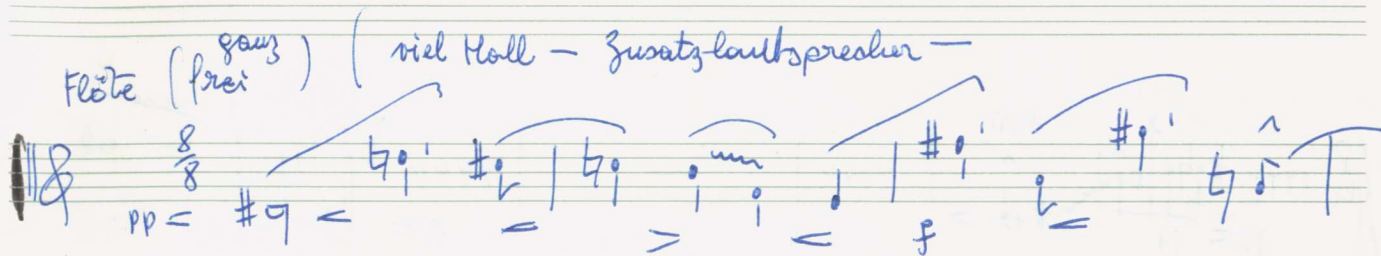 Flöte (ganz frei) ( viel Hall – Zusatzlautsprecher –
8/8
pp f